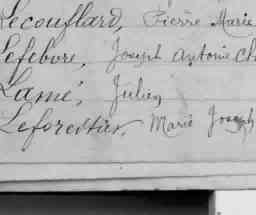 Lecouflard, Pierre Marie
Lefebvre, Joseph Antoine Ch
Lamé, Julien
Leforestier, Marie Joseph